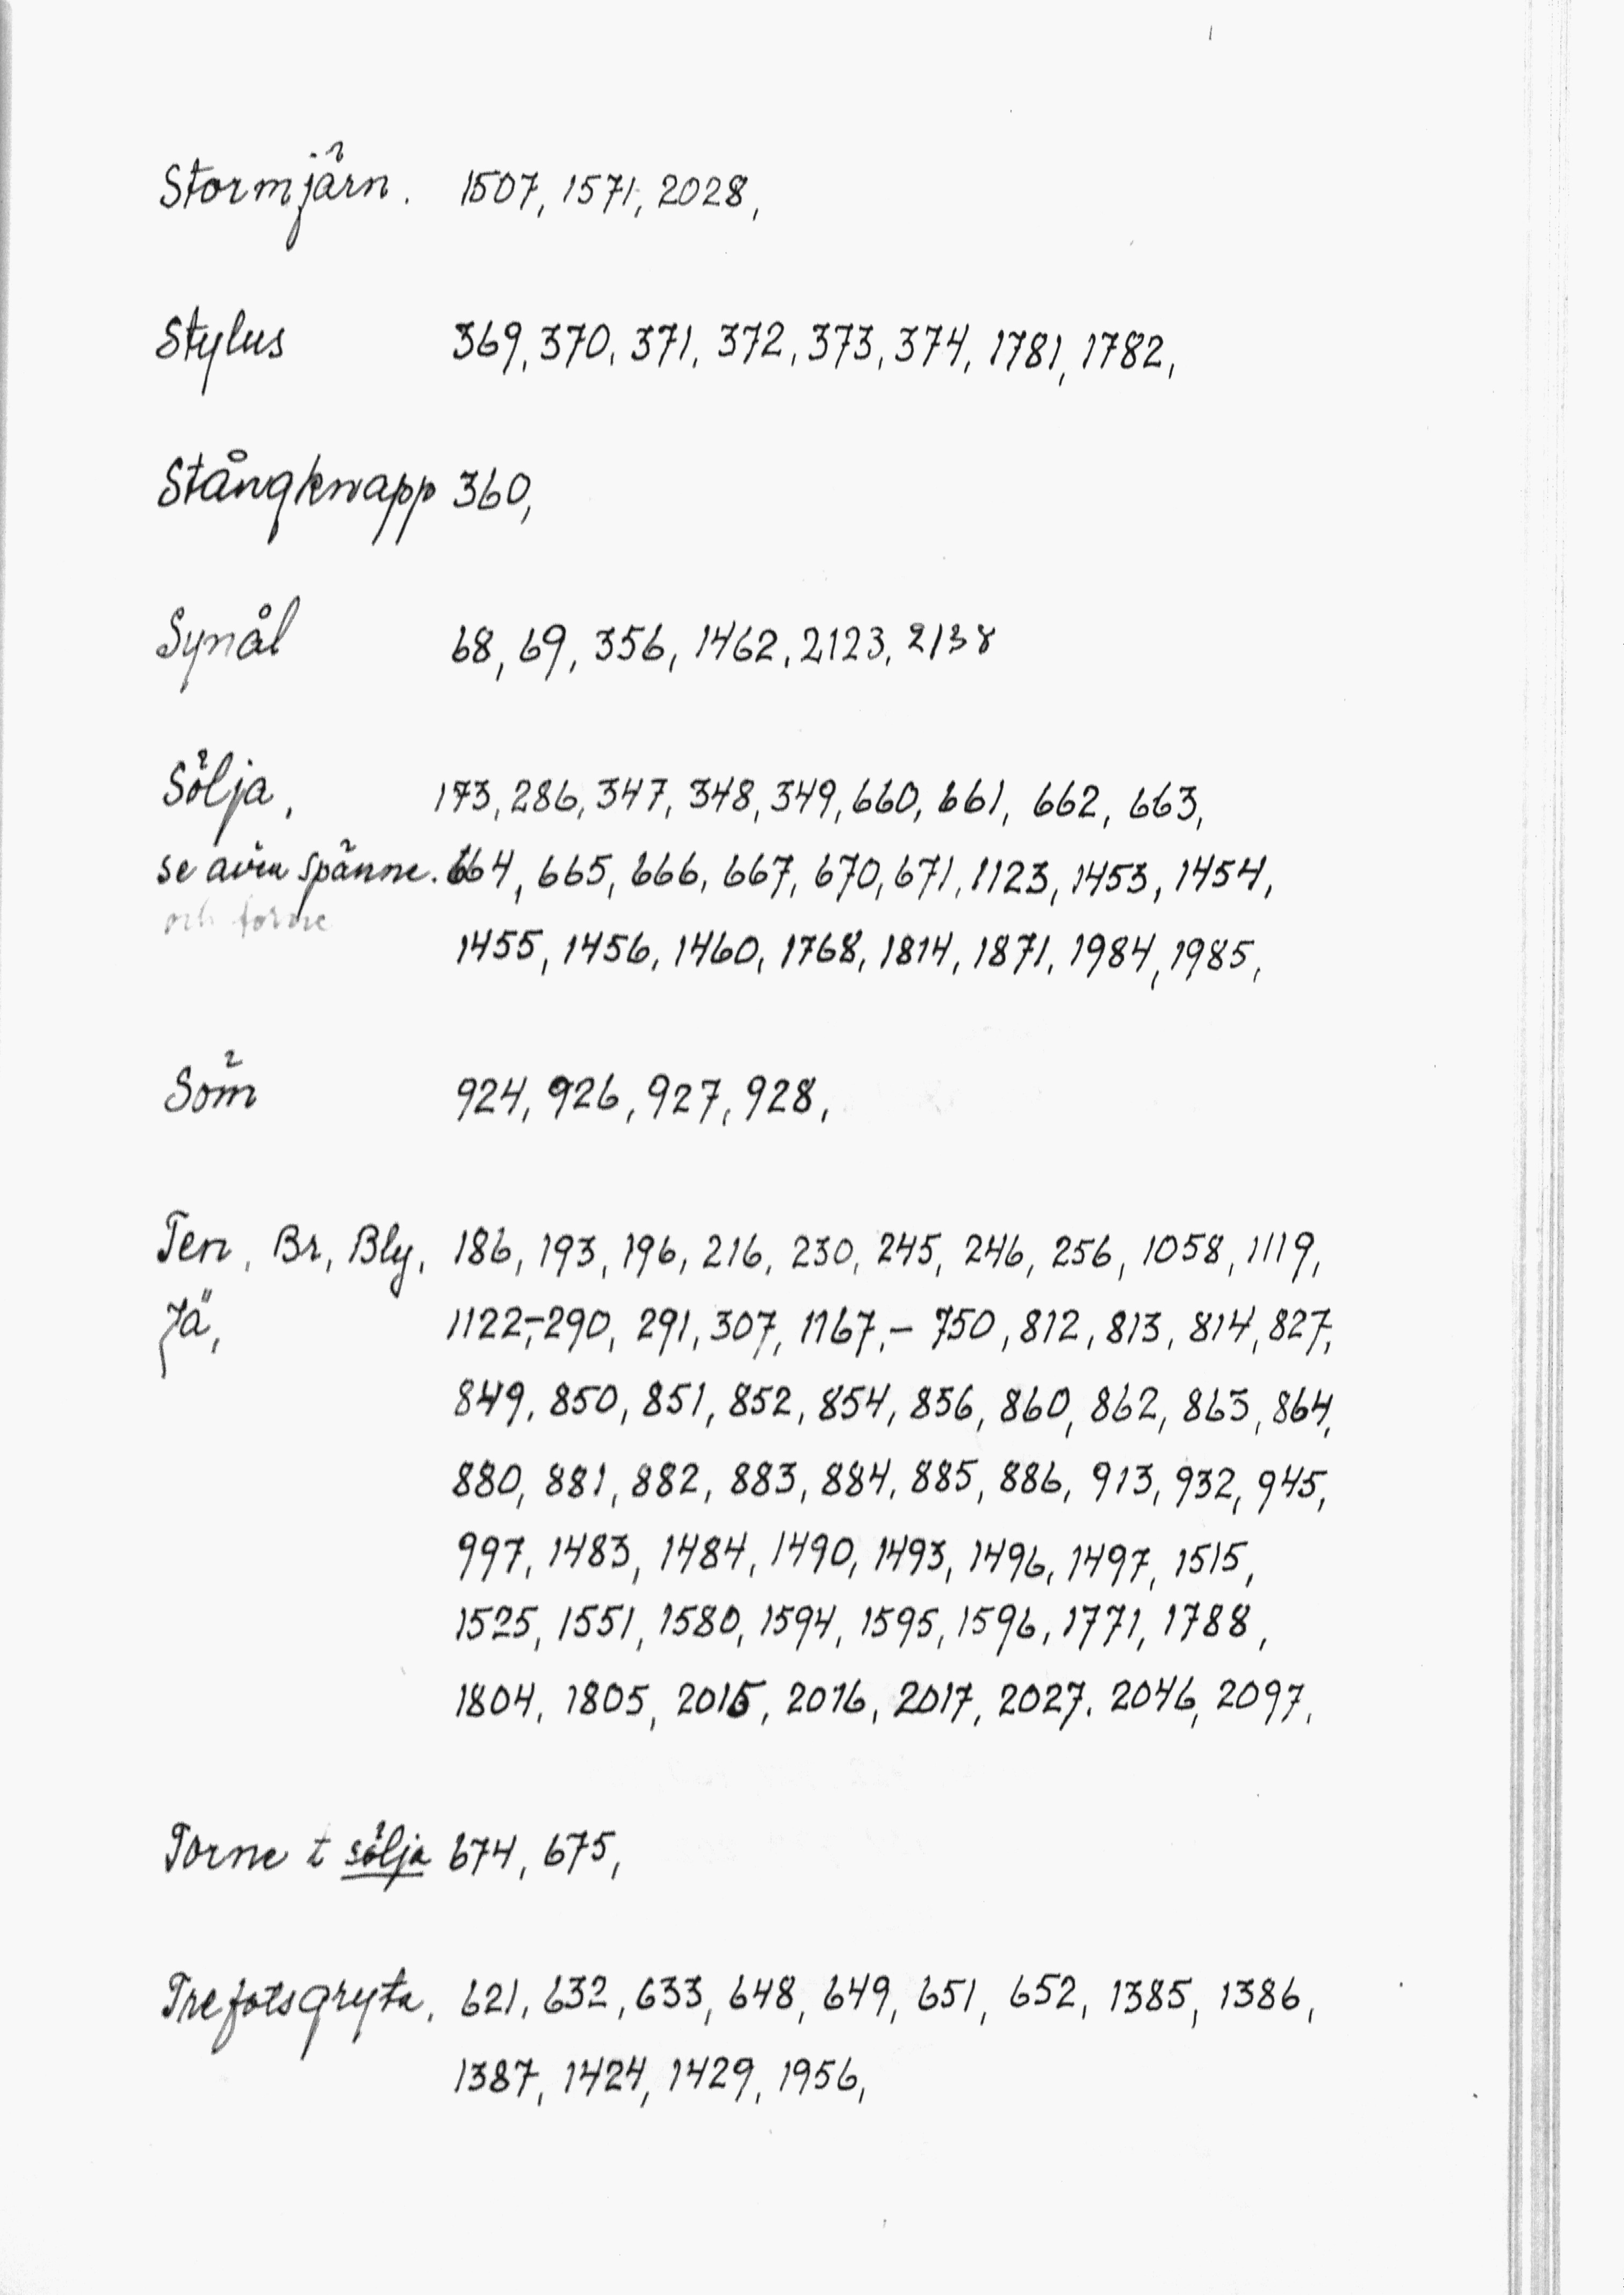 Stormjärn. 1507, 1571, 2028,
Stylus 369, 370, 371, 372, 373, 374, 1781, 1782,
Stångknapp 360,
Synål 68, 69, 356, 1462, 2123, 2138
Sölja, 173, 286, 347, 348, 349, 660, 661, 662, 663,
se även spänne. 664, 665, 666, 667, 670, 671, 1123, 1453, 1454,
och torne
1455, 1456, 1460, 1768, 1814, 1871, 1984, 1985,
Söm 924, 926, 927, 928,
Ten, Br, Bly, 186, 193, 196, 216, 230, 245, 246, 256, 1058, 1119,
Jä, 1122,-290, 291, 307, 1167,- 750, 812, 813, 814, 827,
849, 850, 851, 852, 854, 856, 860, 862, 863, 864,
880, 881, 882, 883, 884, 885, 886, 913, 932, 945,
997, 1483, 1484, 1490, 1493, 1496, 1497, 1515,
1525, 1551, 1580, 1594, 1595, 1596, 1771, 1788,
1804, 1805, 2015, 2016, 2017, 2027, 2046, 2097,
Torne t sölja 674, 675,
Trefotsgryta, 621, 632, 633, 648, 649, 651, 652, 1385, 1386,
1387, 1424, 1429, 1956,